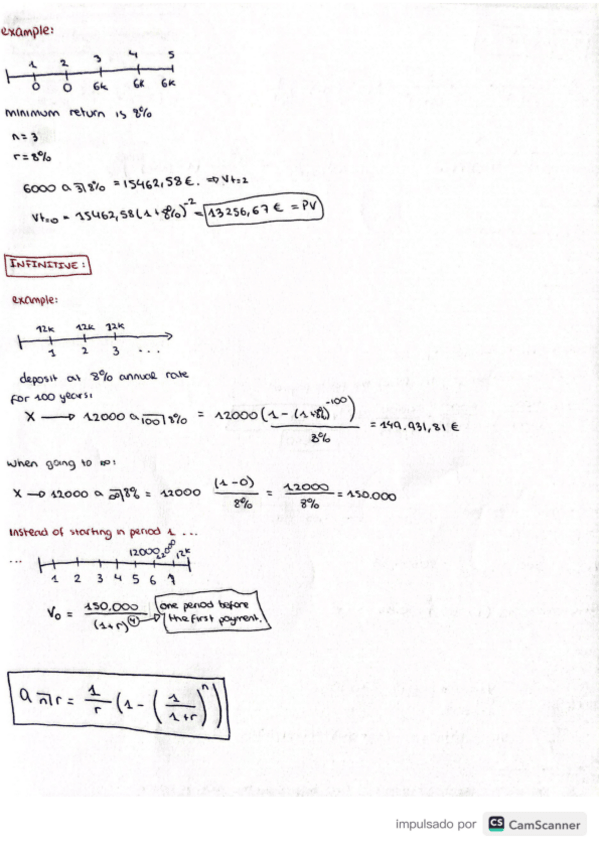 example:
1 2 3 4 5
0 0 6k 6k 6k
minimum return is 8%
n = 3
r = 8%
6000 a 3| 8% = 15462,58 €. ⇒ Vt=2
Vt=0 = 15462,58 (1+8%)^-2 = 13256,67 € = PV
INFINITIVE:
example:
12k 12k 12k
1 2 3 ...
deposit at 8% annual rate
for 100 years:
X → 12000 a 100| 8% = 12000 (1 - (1+8%)^-100) / 8% = 149.931,81 €
when going to ∞:
X → 12000 a ∞| 8% = 12000 (1-0) / 8% = 12000 / 8% = 150.000
instead of starting in period 1 ...
12000 12000 12k
... 1 2 3 4 5 6 7
V0 = 150,000 / (1+r)^4 → one period before
the first payment.
a n| r = 1/r (1 - (1/(1+r))^n)
impulsado por CS CamScanner